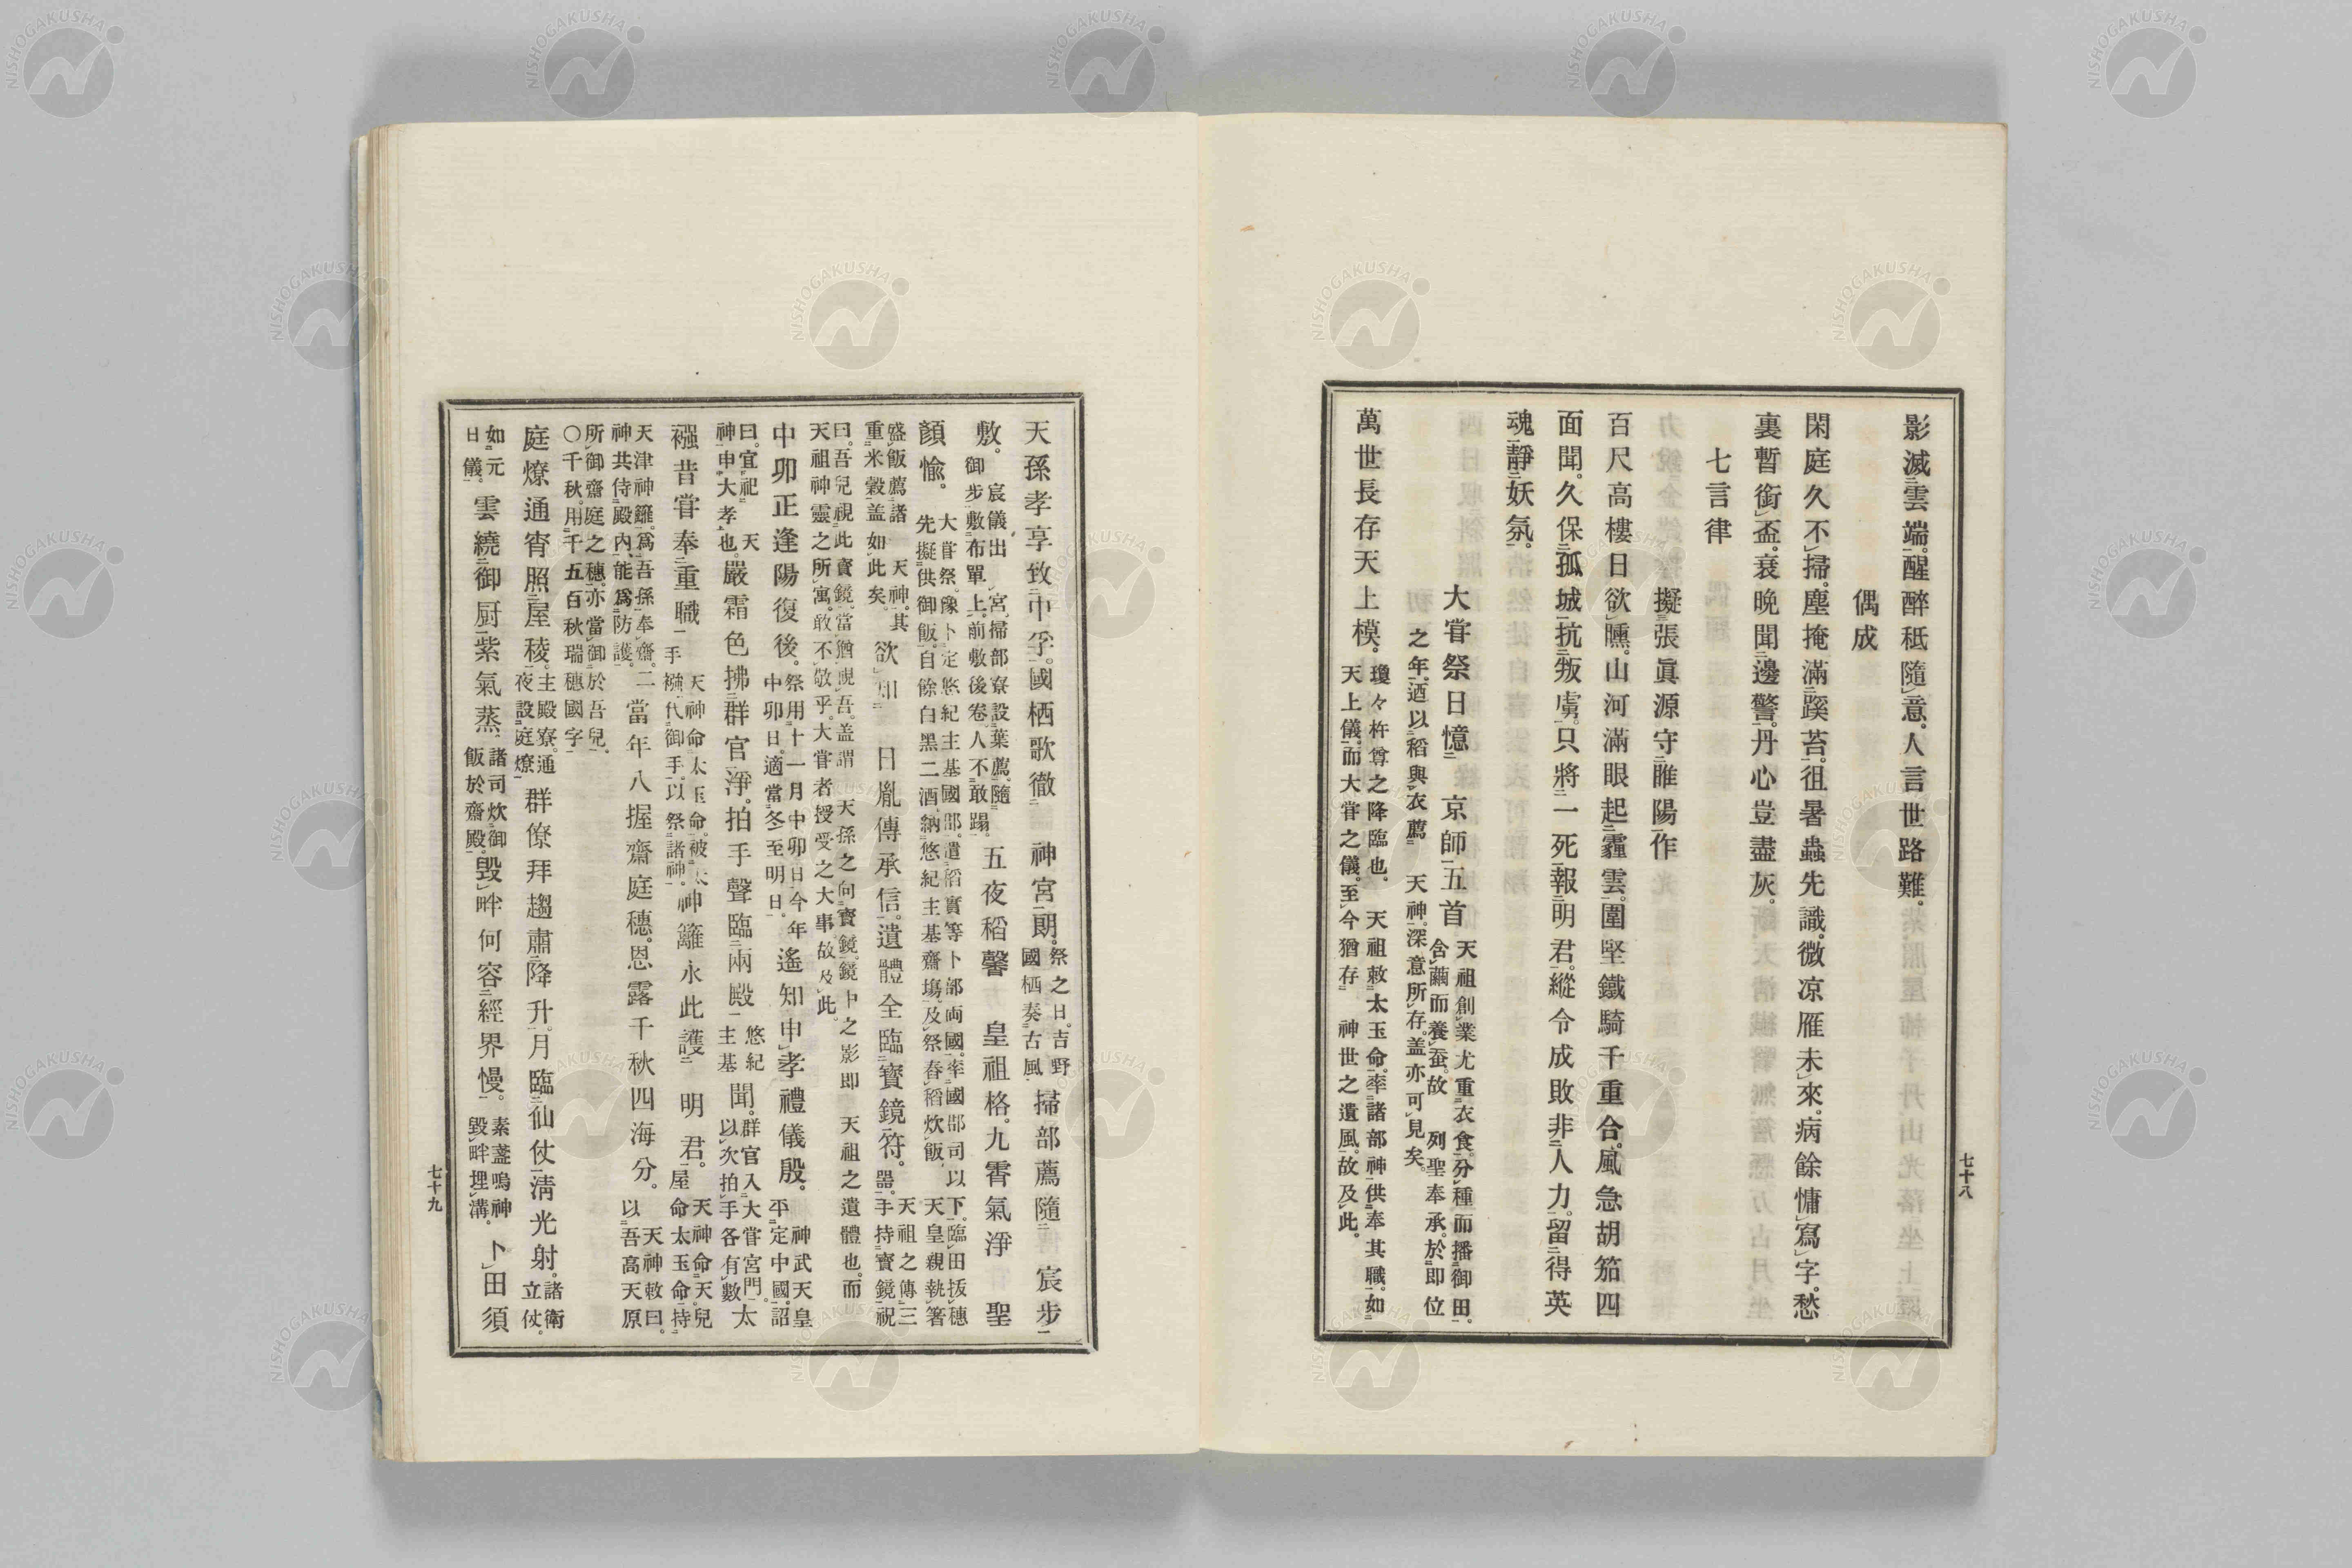 影滅雲端。醒醉秪隨意。人言世路難。
偶成
閑庭久不掃。塵掩滿蹊苔。徂暑蟲先識。微凉雁未來。病餘慵寫字。愁
裏暫銜盃。衰晩聞邊警。丹心豈盡灰。
七言律
擬張眞源守睢陽作
百尺高樓日欲曛。山河滿眼起霾雲。圍堅鐵騎千重合。風急胡笳四
面聞。久保孤城抗叛虜。只將一死報明君。縱令成敗非人力。留得英
魂靜妖氛。
大甞祭日憶京師五首
天祖創業尤重衣食。分種而播御田。
含繭而養蚕。故 列聖奉承。於即位
之年。迺以稻與衣薦 天神。深意所存。盖亦可見矣。
萬世長存天上模。
瓊々杵尊之降臨也。 天祖敕太玉命。率諸部神供奉其職。如
天上儀。而大甞之儀。至今猶存 神世之遺風。故及此。
七十八
天孫孝享致中孚。國栖歌徹 神宮朗。
祭之日。吉野
國栖奏古風
掃部薦隨 宸步
敷。
宸儀出 宮。掃部寮設葉薦。隨
御步敷布單上。前敷後卷。人不敢蹋。
五夜稻馨 皇祖格。九霄氣淨 聖
顏愉。
大甞祭。豫卜定悠紀主基國郡。遣稻實等卜部兩國。率國郡司以下。臨田拔穗
先擬供御飯。自餘白黑二酒。納悠紀主基齋塲。及祭舂稻炊飯。 天皇親執箸
盛飯薦諸 天神。其
重米穀盖如此矣。
欲知 日胤傳承信。遺體全臨寶鏡符。
天祖之傳三
器。手持寶鏡祝
曰。吾兒視此寶鏡。當猶視吾。盖謂 天孫之向寶鏡。鏡中之影即 天祖之遺體也。而
天祖神靈之所寓。敢不敬乎。大甞者授受之大事故及此。
中卯正逢陽復後。
祭用十一月中卯日今年
中卯日。適當冬至明日。
遙知申孝禮儀殷。
神武天皇
平定中國。詔
曰。宜祀 天
神申大孝也。
嚴霜色拂群官淨。拍手聲臨兩殿
悠紀
主基
聞。
群官入大甞宮門。
以次拍手各有數
太
襁昔甞奉重職
天神命太玉命。被太
手襁。代御手。以祭諸神。
神籬永此護 明君。
天神命天兒
屋命太玉命持
天津神籬。爲吾孫奉齋。二
神共侍殿內能爲防護。
當年八握齋庭穗。恩露千秋四海分。
天神敕曰。
以吾高天原
所御齋庭之穗。亦當御於吾兒。
〇千秋。用千五百秋瑞穗國字
庭燎通宵照屋稜。
主殿寮。通
夜設庭燎
群僚拜趨肅降升。月臨仙仗淸光射。
諸衛
立仗。
如元
日儀。
雲繞御厨紫氣蒸。
諸司炊御
飯於齋殿。
毀畔何容經界慢。
素盞嗚神
毀畔埋溝。
卜田須
七十九